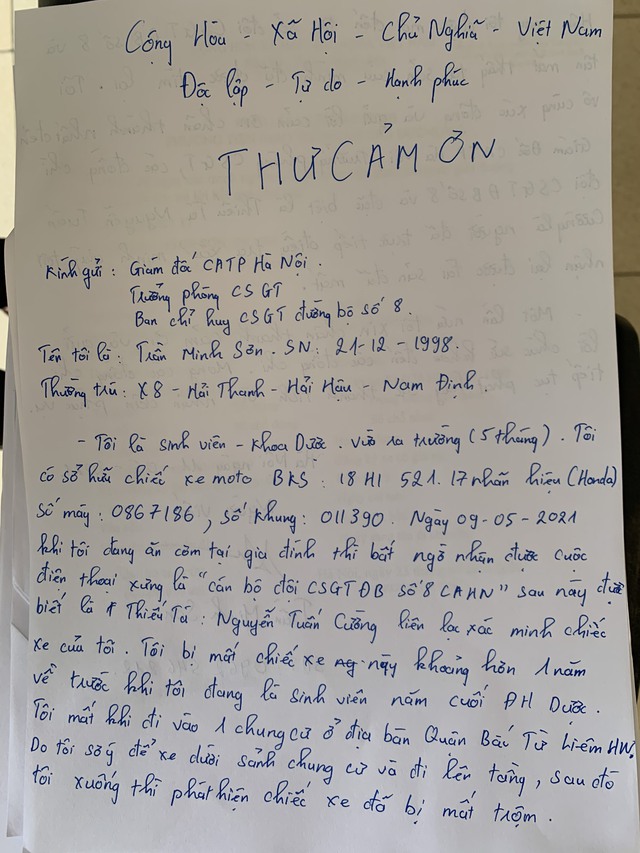 Cộng Hòa - Xã Hội - Chủ Nghĩa - Việt Nam
Độc lập - Tự do - Hạnh phúc
THƯ CẢM ƠN
Kính gửi : Giám đốc CATP Hà Nội .
Trưởng phòng CSGT
Ban chỉ huy CSGT đường bộ số 8 .
Tên tôi là : Trần Minh Sơn . SN : 21-12-1998.
Thường trú : X8 - Hải Thanh - Hải Hậu - Nam Định .
- Tôi là sinh viên - khoa Dược . vừa ra trường (5 tháng) . Tôi
có sở hữu chiếc xe moto BKS : 18H1 521.17 nhãn hiệu (Honda)
Số máy : 0867186 , số khung : 011390 . Ngày 09-05-2021
khi tôi đang ăn cơm tại gia đình thì bất ngờ nhận được cuộc
điện thoại xưng là "cán bộ đội CSGTĐB số 8 CAHN" sau này được
biết là Thiếu Tá : Nguyễn Tuấn Cường liên lạc xác minh chiếc
xe của tôi . Tôi bị mất chiếc xe này khoảng hơn 1 năm
về trước khi tôi đang là sinh viên năm cuối ĐH Dược .
Tôi mất khi đi vào 1 chung cư ở địa bàn Quận Bắc Từ Liêm HN.
Do tôi sơ ý để xe dưới sảnh chung cư và đi lên tầng , sau đó
tôi xuống thì phát hiện chiếc xe đã bị mất trộm .